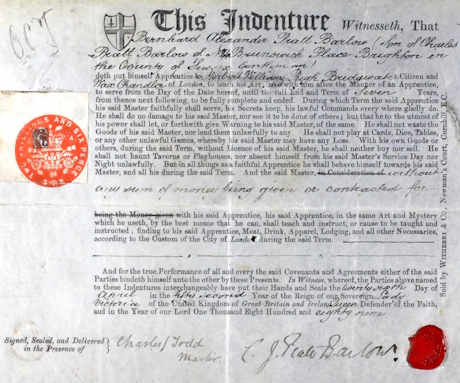 This Indenture Witnesseth, That
Bernhard Alexander Pratt Barlow Son of Charles
Pratt Barlow of Brunswick Place Brighton in
the County of
doth put himself Apprentice to Herbert William Citizen and
Wax Chandler of London, to learn his Art, and with him after the Manner of an Apprentice
to serve from the Day of the Date hereof, until the full End and Term of Seven Years,
from thence next following, to be fully complete and ended. During which Term the said Apprentice
his said Master faithfully shall serve, his Secrets keep, his lawful Commands every where gladly do.
He shall do no damage to his said Master, nor see it to be done of others; but that he to the utmost of
his power shall let, or forthwith give Warning to his said Master, of the same. He shall not waste the
Goods of his said Master, nor lend them unlawfully to any. He shall not play at Cards, Dice, Tables,
or any other unlawful Games, whereby his said Master may have any Loss. With his own Goods or
others, during the said Term, without Licence of his said Master, he shall neither buy nor sell. He
shall not haunt Taverns or Playhouses, nor absent himself from his said Master's Service Day nor
Night unlawfully. But in all things as a faithful Apprentice he shall behave himself towards his said
Master, and all his during the said Term. And the said Master, in Consideration of without
any sum of money being given or contracted for
being the Money given with his said Apprentice, his said Apprentice, in the same Art and Mystery
which he useth, by the best means that he can, shall teach and instruct, or cause to be taught and
instructed; finding to his said Apprentice, Meat, Drink, Apparel, Lodging, and all other Necessaries,
according to the Custom of the City of London, during the said Term.
And for the true Performance of all and every the said Covenants and Agreements either of the said
Parties bindeth himself unto the other by these Presents. In Witness, whereof, the Parties above named
to these Indentures interchangeably have put their Hands and Seals the twenty sixth Day of
April in the fifty second Year of the Reign of our Sovereign Lady
Victoria of the United Kingdom of Great Britain and Ireland, Queen Defender of the Faith,
and in the Year of our Lord One Thousand Eight Hundred and eighty nine
Signed, Sealed, and Delivered
in the Presence of
Charles Todd
C. J. Pratt Barlow
Sold by WITHERBY & Co., Newman's Court, Cornhill, E.C.
TWO SHILLINGS AND SIXPENCE